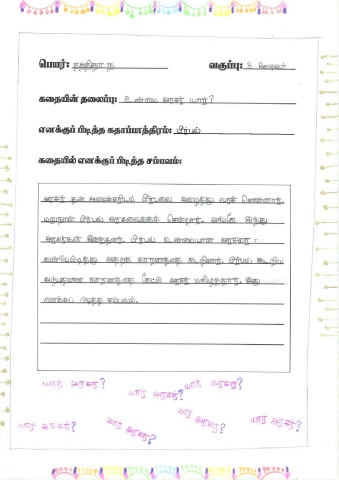 பெயர்: நந்திதா ந வகுப்பு: 3 Respect
கதையின் தலைப்பு: உண்மை அரசர் யார்?
எனக்குப் பிடித்த கதாப்பாத்திரம்: பீர்பல்
கதையில் எனக்குப் பிடித்த சம்பவம்:
அரசர் தன் அமைச்சரிடம் பீர்பலை அழைத்து வரச் சொன்னார்.
மறுநாள் பீர்பல் அரசவைக்குச் சென்றார். அங்கே ஐந்து
அரசர்கள் இருந்தனர். பீர்பல் உண்மையான அரசரை
கண்டுபிடித்து அதற்கு காரணத்தை கூறினார். பீர்பல் கூறிய
அற்புதமான காரணத்தை கேட்டு அரசர் மகிழ்ந்தார். இது
எனக்குப் பிடித்த சம்பவம்.
யார் அரசர்? யார் அரசர்? யார் அரசர்?
யார் அரசர்? யார் அரசர்? யார் அரசர்? யார் அரசர்?